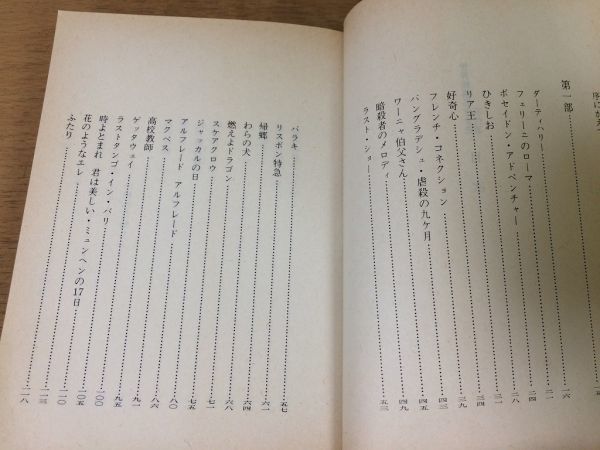 序にかえ
第一部
ダーティハリー……一六
フェリーニのローマ……二一
ポセイドン・アドベンチャー……二四
ひきしお……二八
リア王……三一
好奇心……三四
フレンチ・コネクション……三九
バングラデシュ・虐殺の九ケ月……四三
ワーニャ伯父さん……四五
暗殺者のメロディ……四九
ラスト・ショー……五三
バラキ……五七
リスボン特急……六一
帰郷……六四
わらの犬……六八
燃えよドラゴン……七一
スケアクロウ……七五
ジャッカルの日……八〇
アルフレード アルフレード……八六
マクベス……九一
高校教師……九五
ゲッタウェイ……一〇〇
ラストタンゴ・イン・パリ……一〇五
時よとまれ 君は美しい・ミュンヘンの17日……一一〇
花のようなエレ……一一三
ふたり……一一八